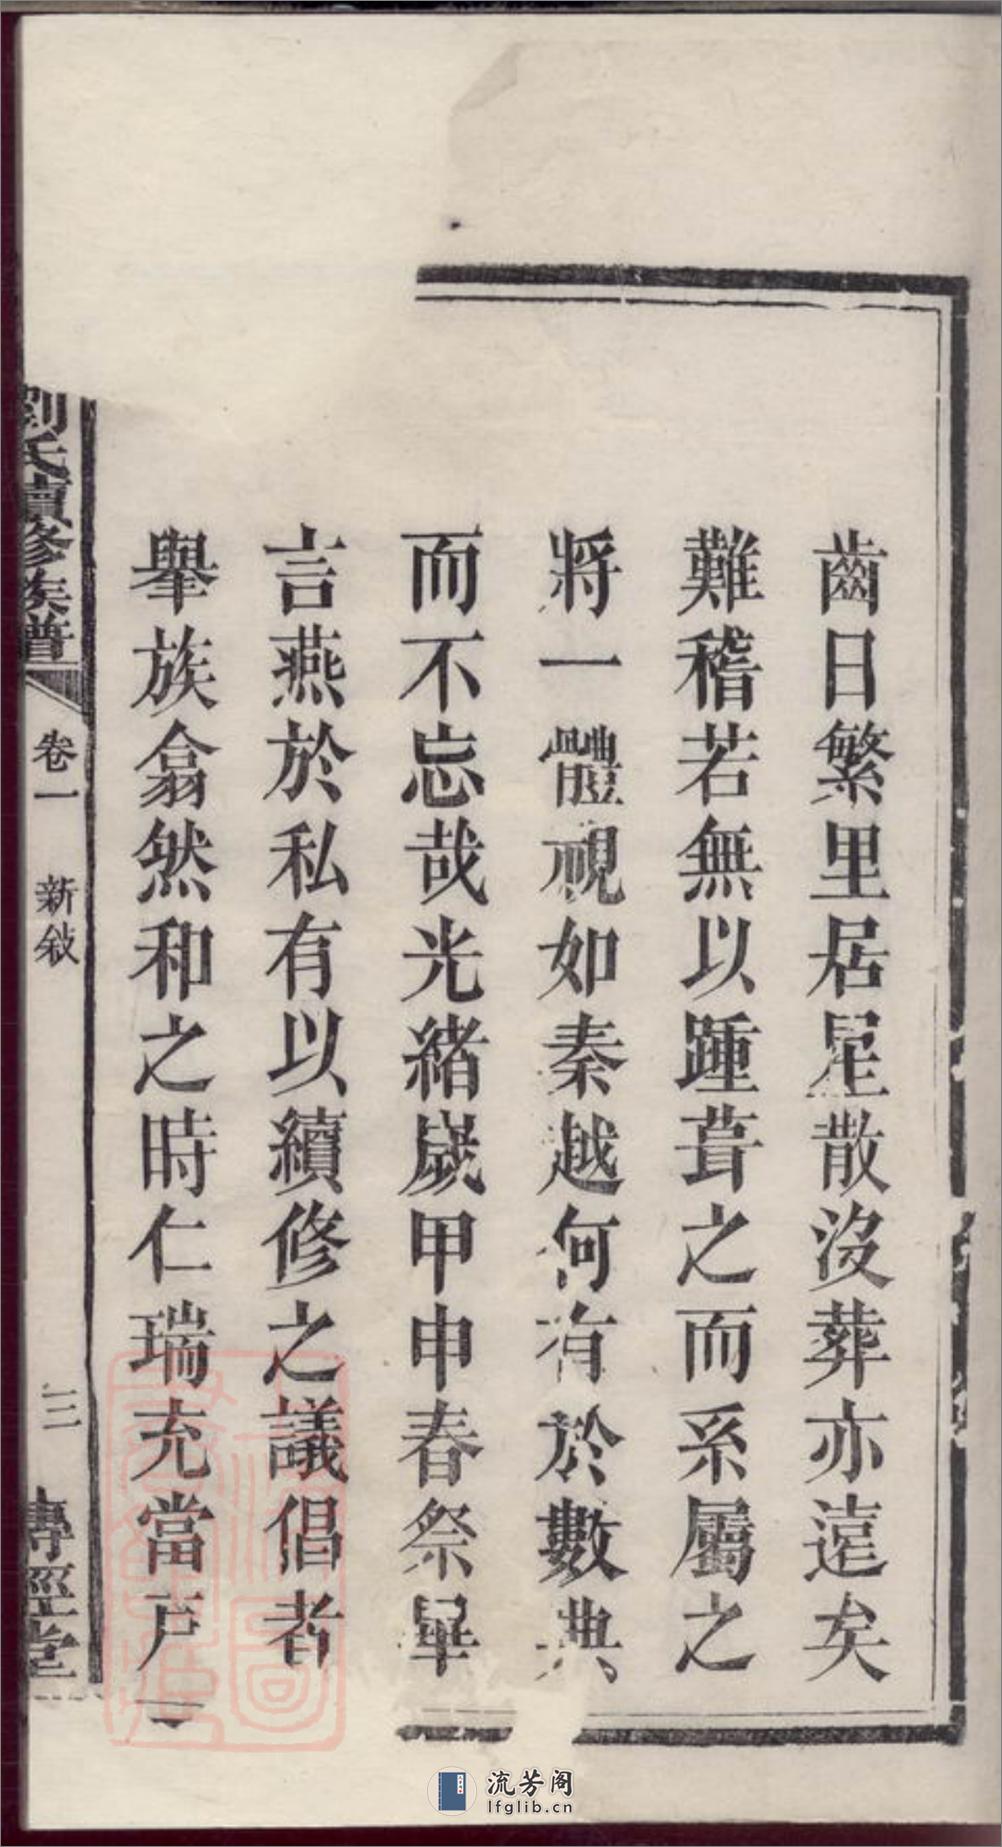 齒日繁里居星散沒葬亦遠矣
難稽若無以踵葺之而系屬之
將一體視如秦越何有於數典
而不忘哉光緒歲甲申春祭畢
言燕於私有以續修之議倡者
舉族翕然和之時仁瑞充當戶
劉氏續修族譜
卷一 新敍
三
傳經堂
流芳阁
lfglib.cn